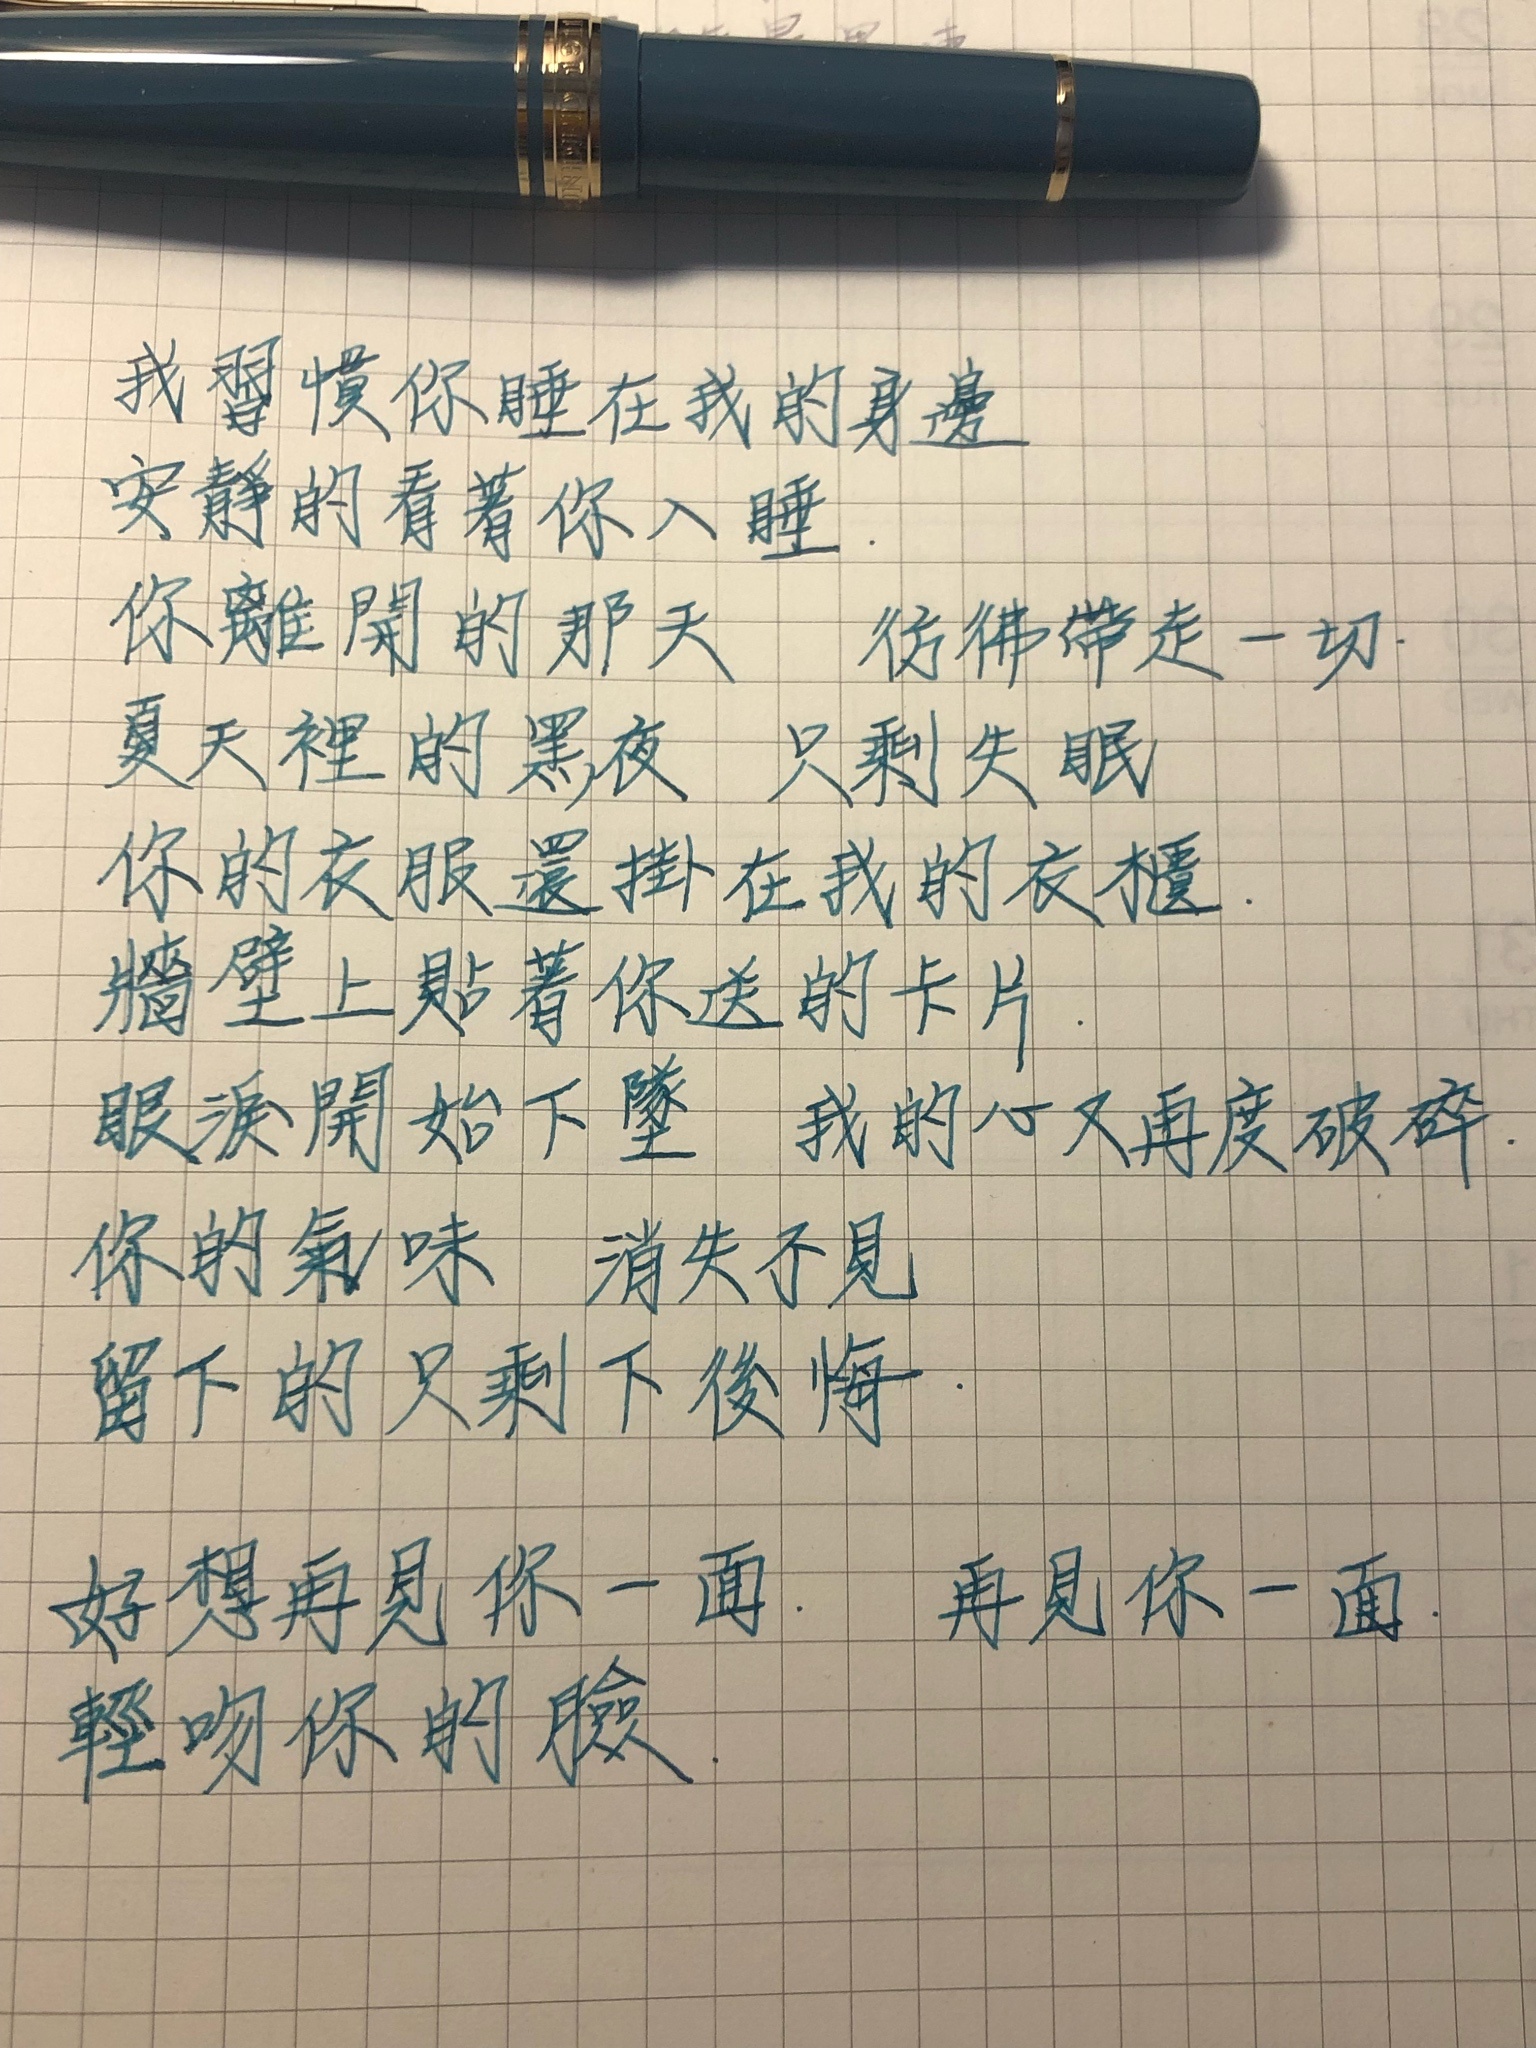 我習慣你睡在我的身邊
安靜的看著你入睡.
你離開的那天 彷彿帶走一切.
夏天裡的黑夜 只剩失眠
你的衣服還掛在我的衣櫃.
牆壁上貼著你送的卡片.
眼淚開始下墜 我的心又再度破碎.
你的氣味 消失不見
留下的只剩下後悔.
好想再見你一面. 再見你一面.
輕吻你的臉.